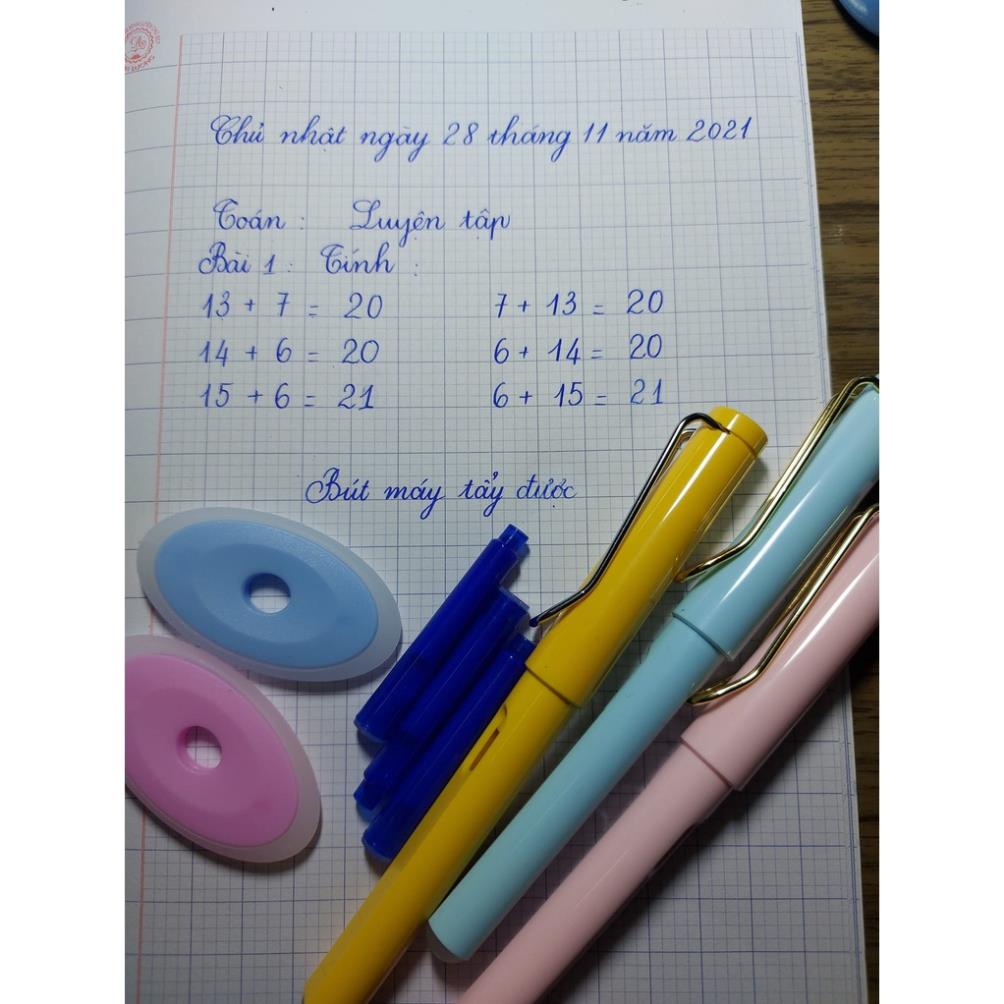 Thủ nhật ngày 28 tháng 11 năm 2021
Toán : Luyện tập
Bài 1 : Tính :
13 + 7 = 20 7 + 13 = 20
14 + 6 = 20 6 + 14 = 20
15 + 6 = 21 6 + 15 = 21
Bút máy tẩy được